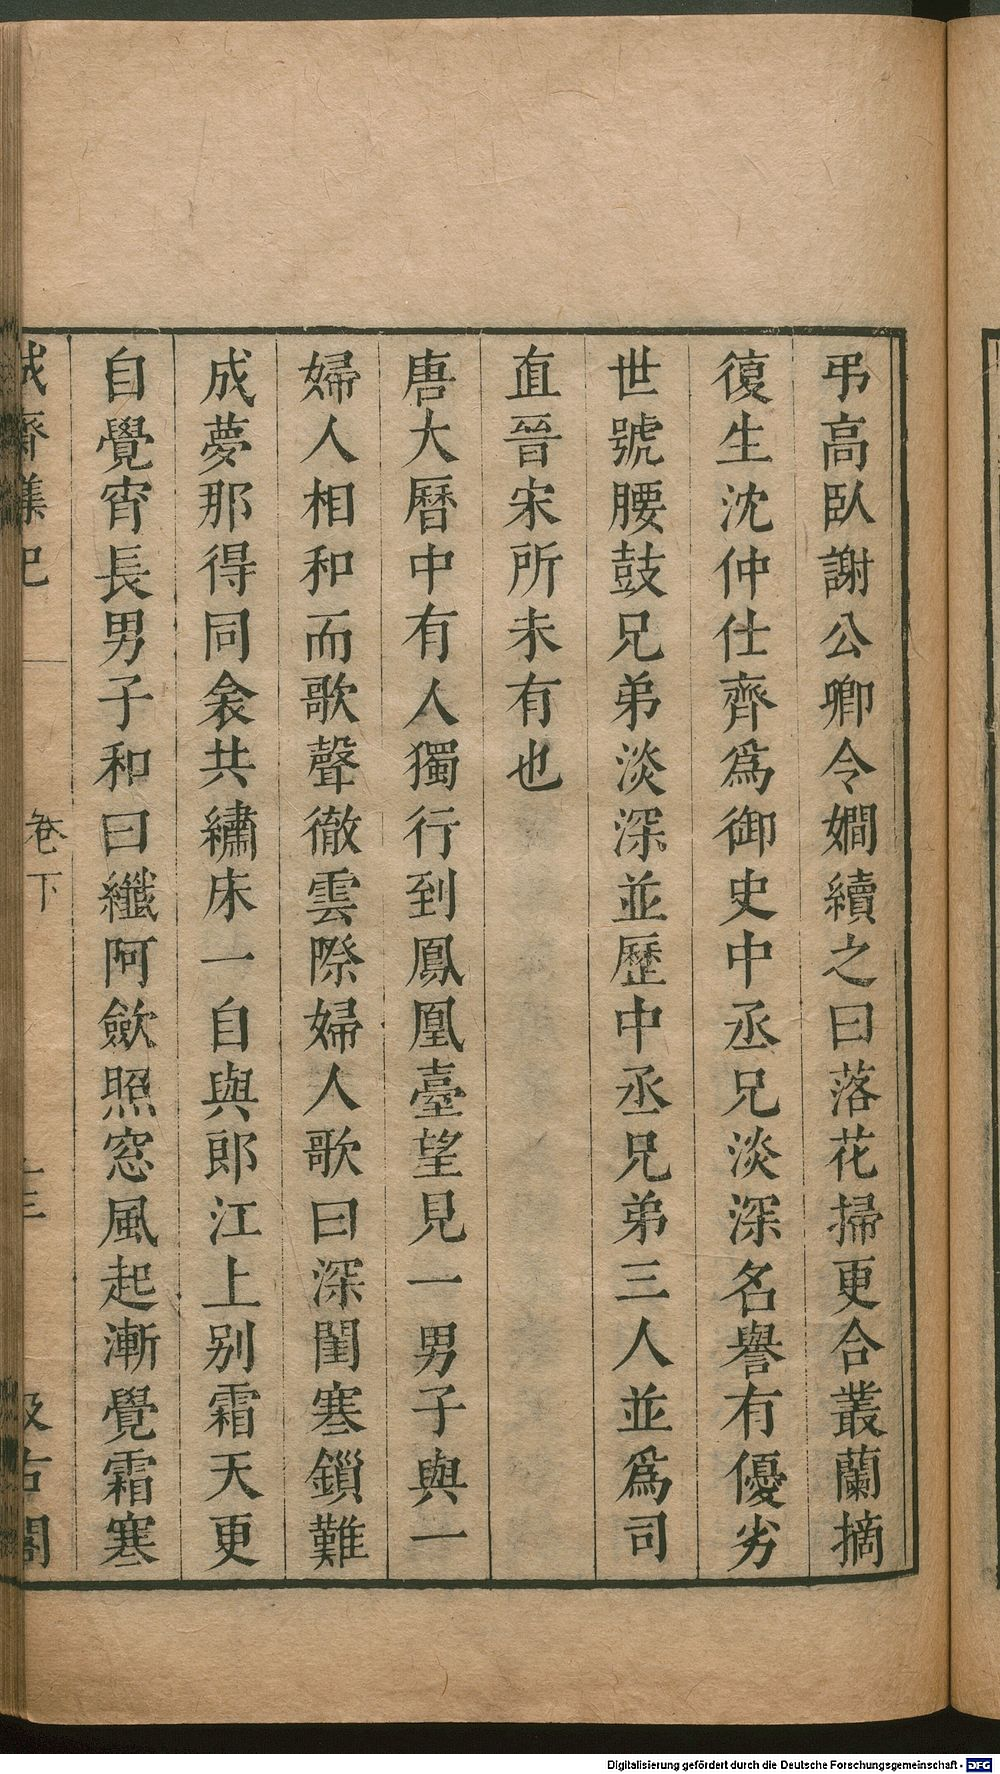 弔高臥謝公卿令嫺續之曰落花掃更合叢蘭摘
復生沈仲仕齊爲御史中丞兄淡深名譽有優劣
世號腰鼓兄弟淡深並歷中丞兄弟三人並爲司
直晉宋所未有也
唐大曆中有人獨行到鳳凰臺望見一男子與一
婦人相和而歌聲徹雲際婦人歌曰深閨寒鎖難
成夢那得同衾共繡床一自與郎江上別霜天更
自覺宵長男子和曰纖阿歛照窓風起漸覺霜寒
誠齋集記
卷下
汲古閣
Digitalisierung gefördert durch die Deutsche Forschungsgemeinschaft - DFG